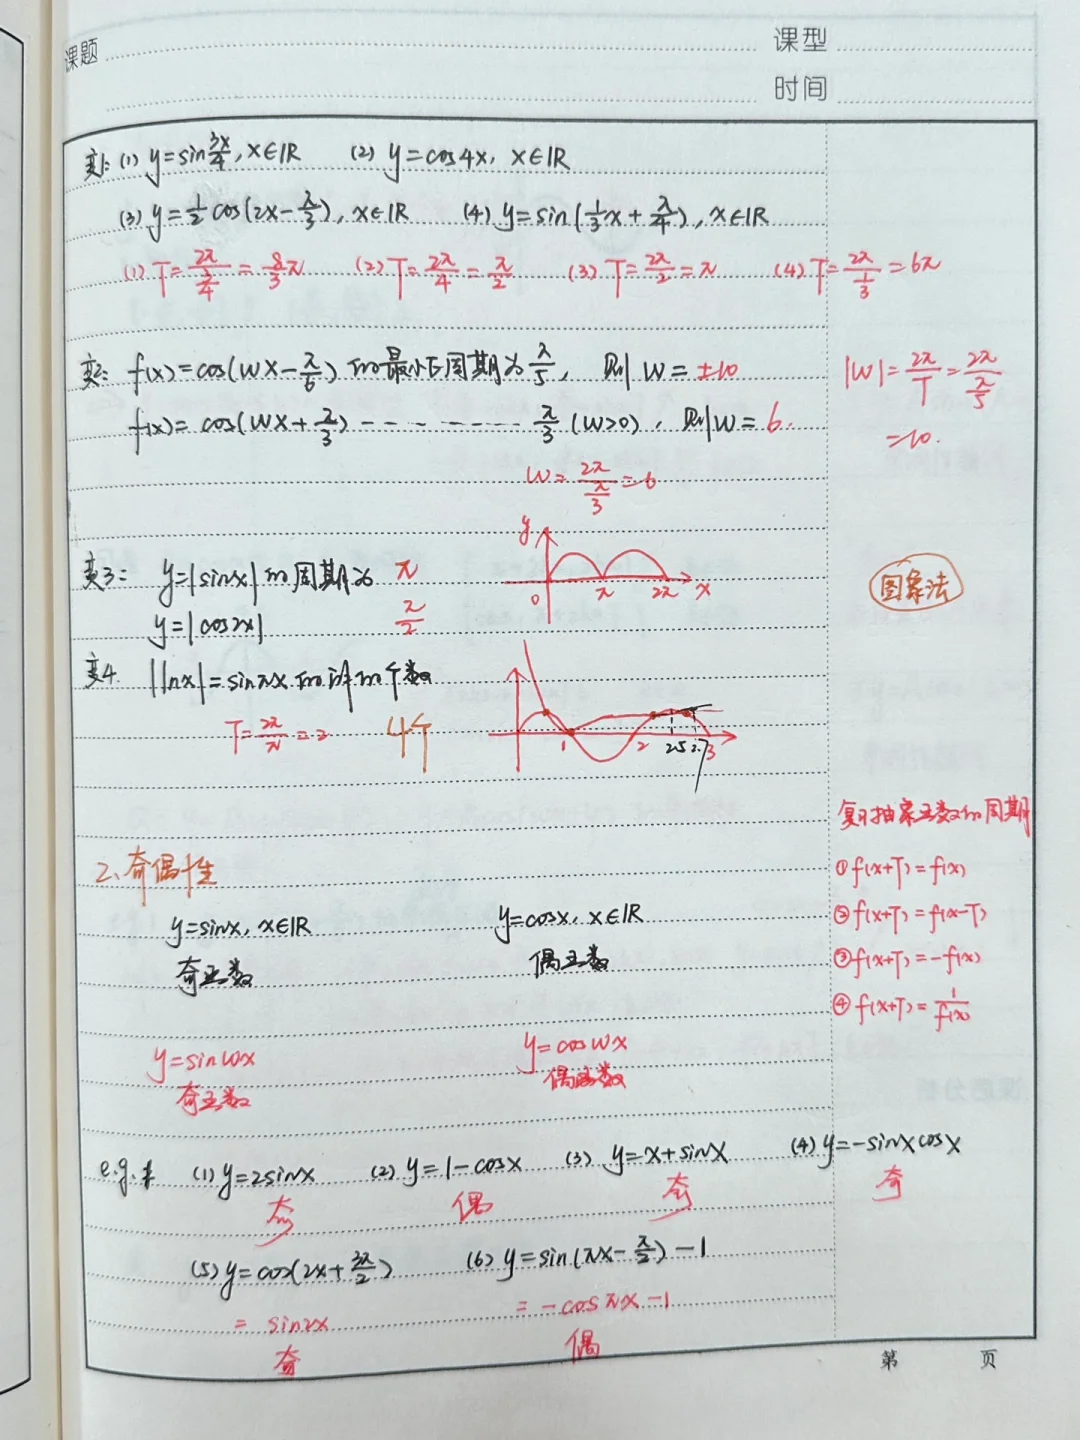 课题 课型
时间
变1: (1) y=sin 3x/4, x∈R (2) y=cos4x, x∈R
(3) y=1/2 cos(2x-π/3), x∈R (4) y=sin(1/3 x+π/4), x∈R
(1) T=2π/(3/4)=8/3 π (2) T=2π/4=π/2 (3) T=2π/2=π (4) T=2π/(1/3)=6π
变2: f(x)=cos(wx-π/6) 的最小正周期为π/5, 则 w=±10
f(x)=cos(wx+π/3) -------- π/3 (w>0), 则 w=6.
w=2π/(π/3)=6
|w|=2π/T=2π/(π/5)
=10.
变3: y=|sinx| 的周期为 π
y=|cos2x| π/2
y 0 π 2π x
图象法
变4. |lnx|=sinπx 的诗的个数
T=2π/π=2 4个
1 2 2.5 2.7 3
复习抽象函数的周期
① f(x+T)=f(x)
② f(x+T)=f(x-T)
③ f(x+T)=-f(x)
④ f(x+T)=1/f(x)
2、奇偶性
y=sinx, x∈R y=cosx, x∈R
奇函数 偶函数
y=sinwx y=coswx
奇函数 偶函数
e.g.1 (1) y=2sinx (2) y=1-cosx (3) y=x+sinx (4) y=-sinxcosx
奇 偶 奇 奇
(5) y=cos(2x+3π/2) (6) y=sin(πx-π/2)-1
= sin2x = -cosπx-1
奇 偶
第 页